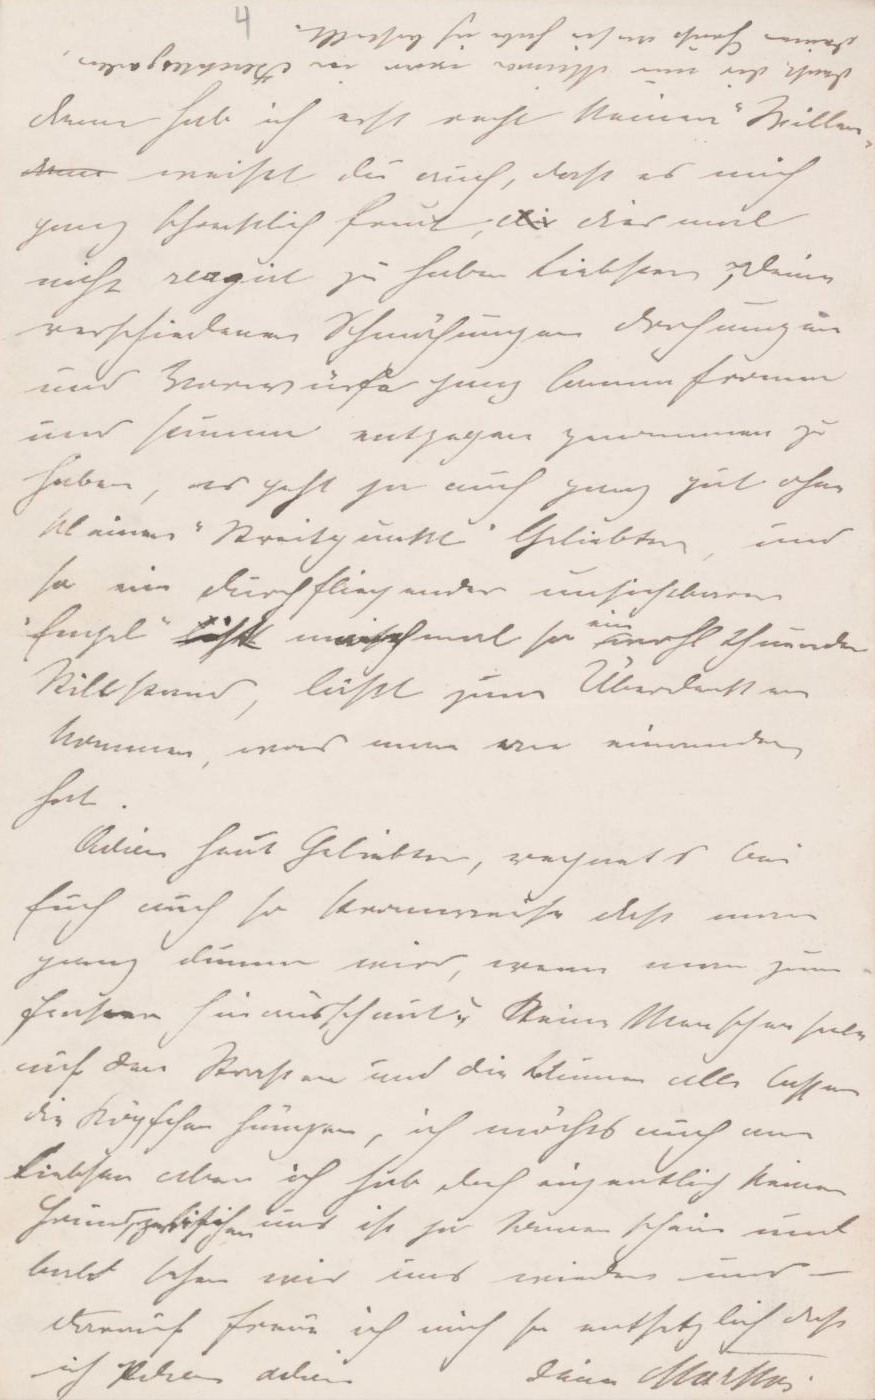 4
denn hab ich erst recht keinen "Willen"
weißt du auch, daß es mich
ganz schrecklich freut, dies mal
nicht reagirt zu haben Liebster, deine
verschiedenen Schmähungen Drohungen
und Vorwürfe ganz lammfromm
und stumm entgegen genommen zu
haben, es geht ja auch ganz gut ohne
kleinen "Streitpunkt" Geliebter, und
so ein durchfliegender unsichtbarer
"Engel" manchmal so ein wohlthuender
Stillstand, läßt zum Überdenken
kommen, was man an einander
hat.
Adieu heut Geliebter, regnet's bei
Euch auch so stromweise daß man
ganz dumm wird, wenn man zum
Fenster hinausschaut, keine Menschenseele
auf den Straßen und die Blumen alle lassen
die Köpfchen hängen, ich möchts auch am
Liebsten aber ich hab doch eigentlich keinen
Grund, zwischen uns ist ja Sonnenschein und
bald sehen wir uns wieder und —
darauf freue ich mich so entsetzlich daß
ich adieu deine Martha